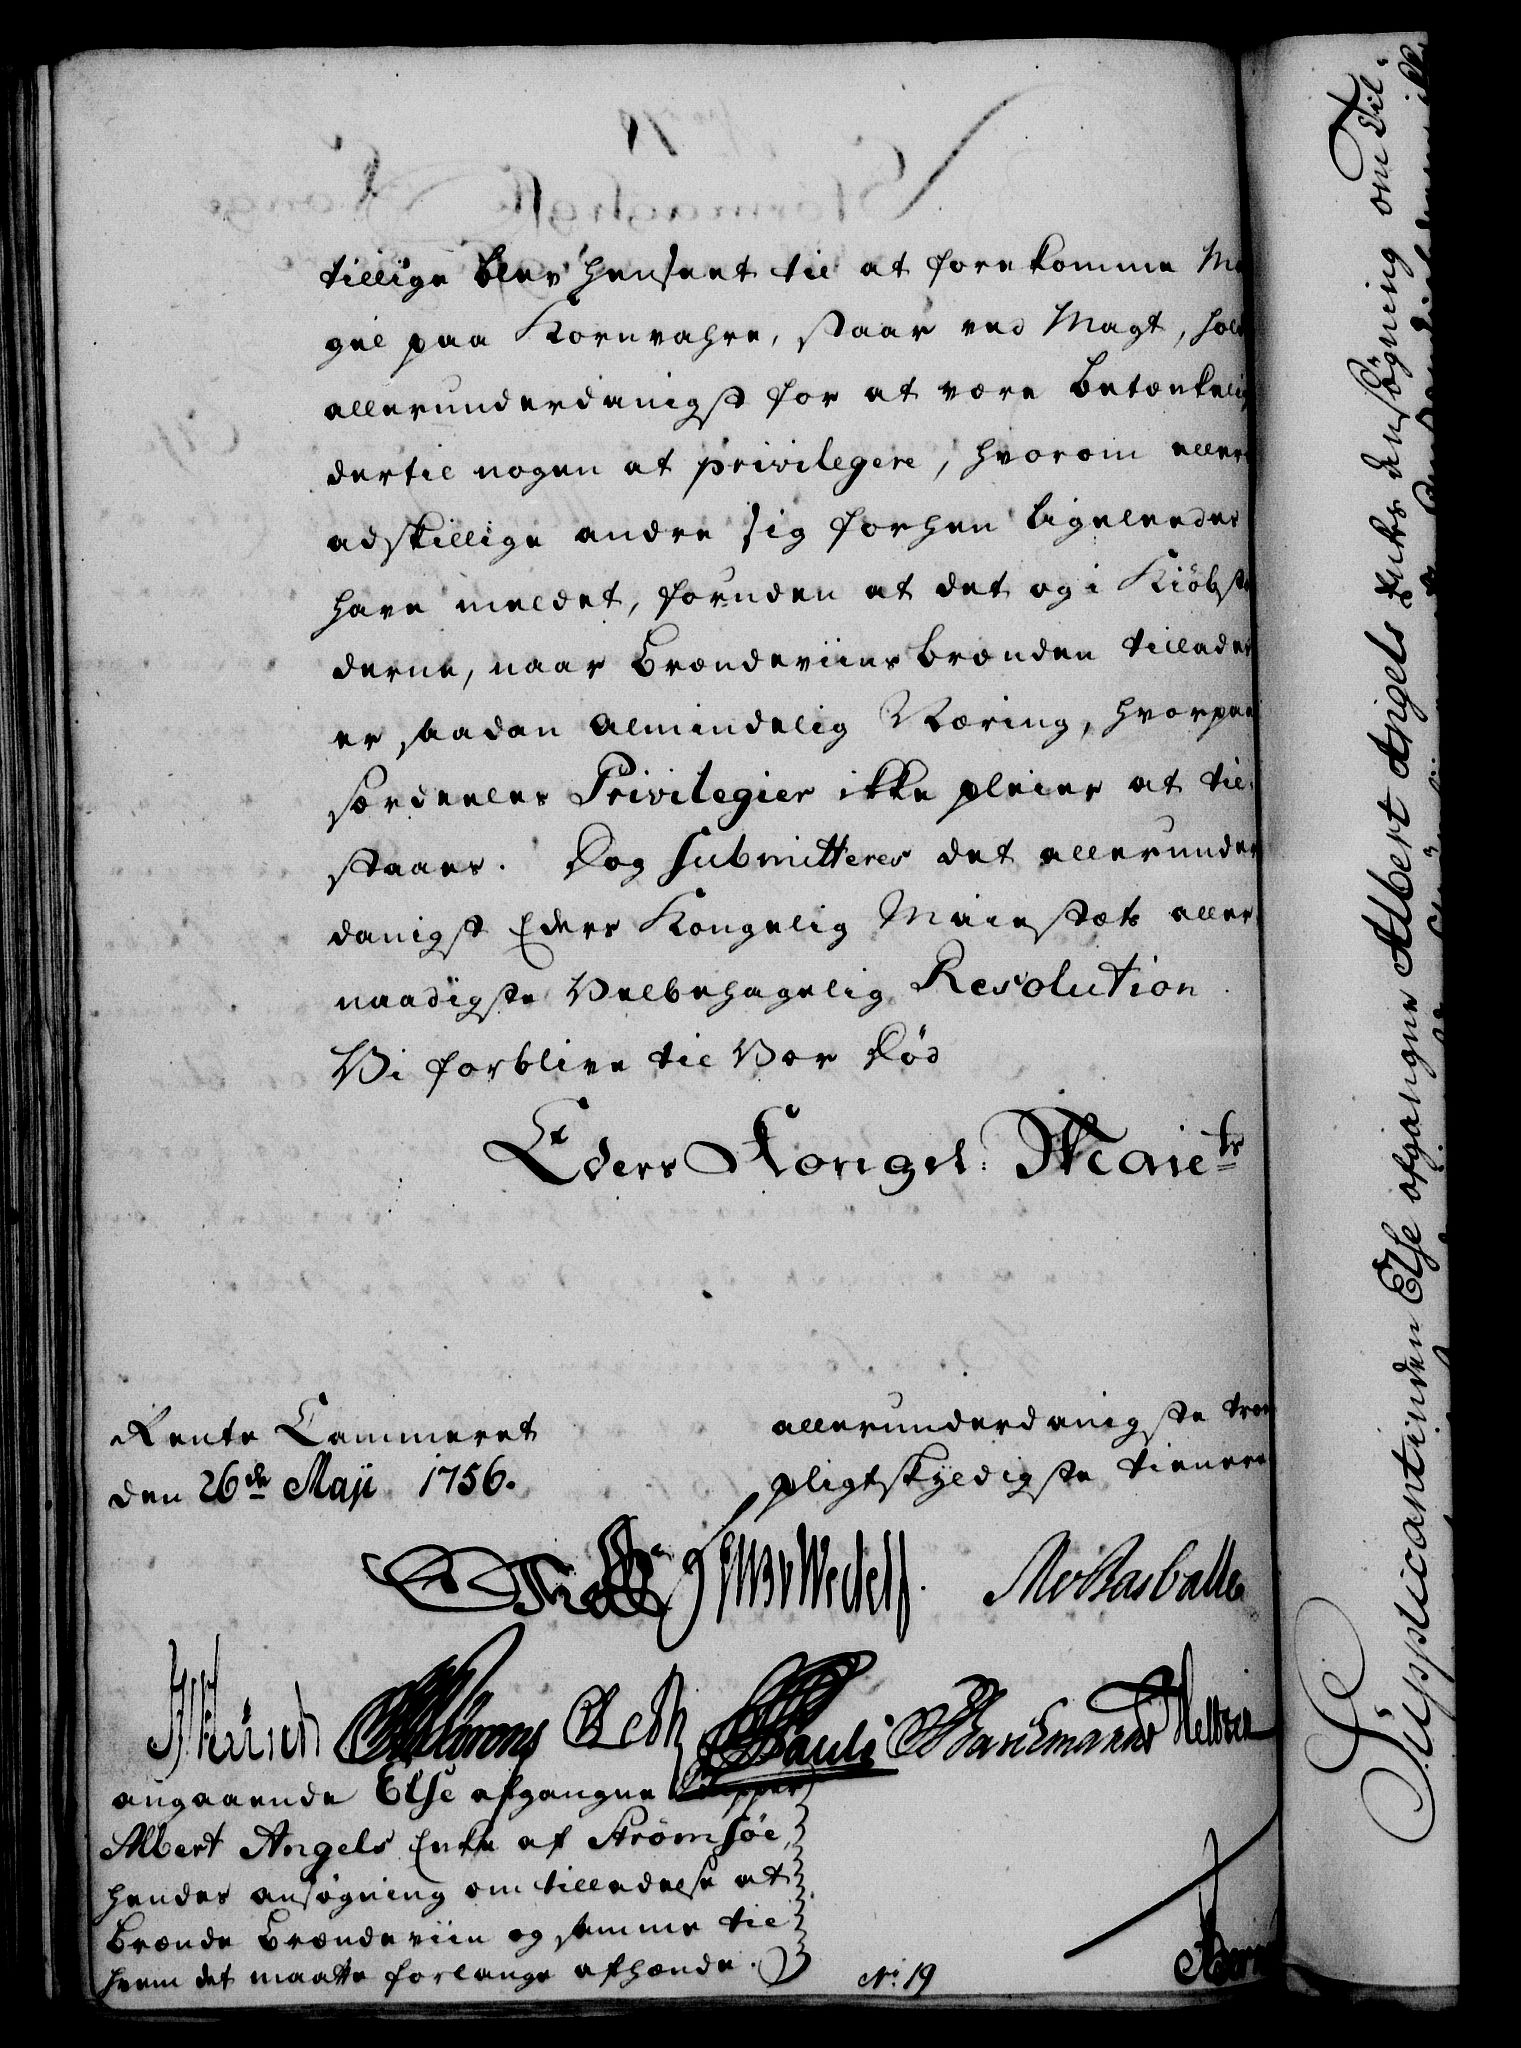 tillige blev henseet til at forekomme Ma
gel paa Kornvahre, staar ved Magt, hold
allerunderdanigst for at være betænkelig
dertil nogen at privilegere, hvorom aller
adskillige andre sig forhen ligeleedes
have meldet, foruden at det og i Kiöbstæ
derne, naar Brændeviins brænden tillades
er saadan almindelig Næring, hvorpaa
særdeeles Privilegier ikke pleier at til-
staaes. Dog submitteres det allerunder
danigst Eders Kongelig Maiestæts aller
naadigste Velbehagelig Resolution.
Vi forblive til Vor Död
Eders Kongel: Maiets
Rente Cammeret
den 26de Maji 1756.
allerunderdanigste troe
pligtskyldigste tienere
Wedell
Holmboe
Pauli
angaaende Else afgangne Skipper
Albert Angels Enke af Strömsöe,
hendes ansögning om tilladelse at
brænde Brændeviin og samme til
hvem det maatte forlange afhænde.
No: 19
Supplicantinden Else afgangne Albert Angels Enkes Ansögning om Til-